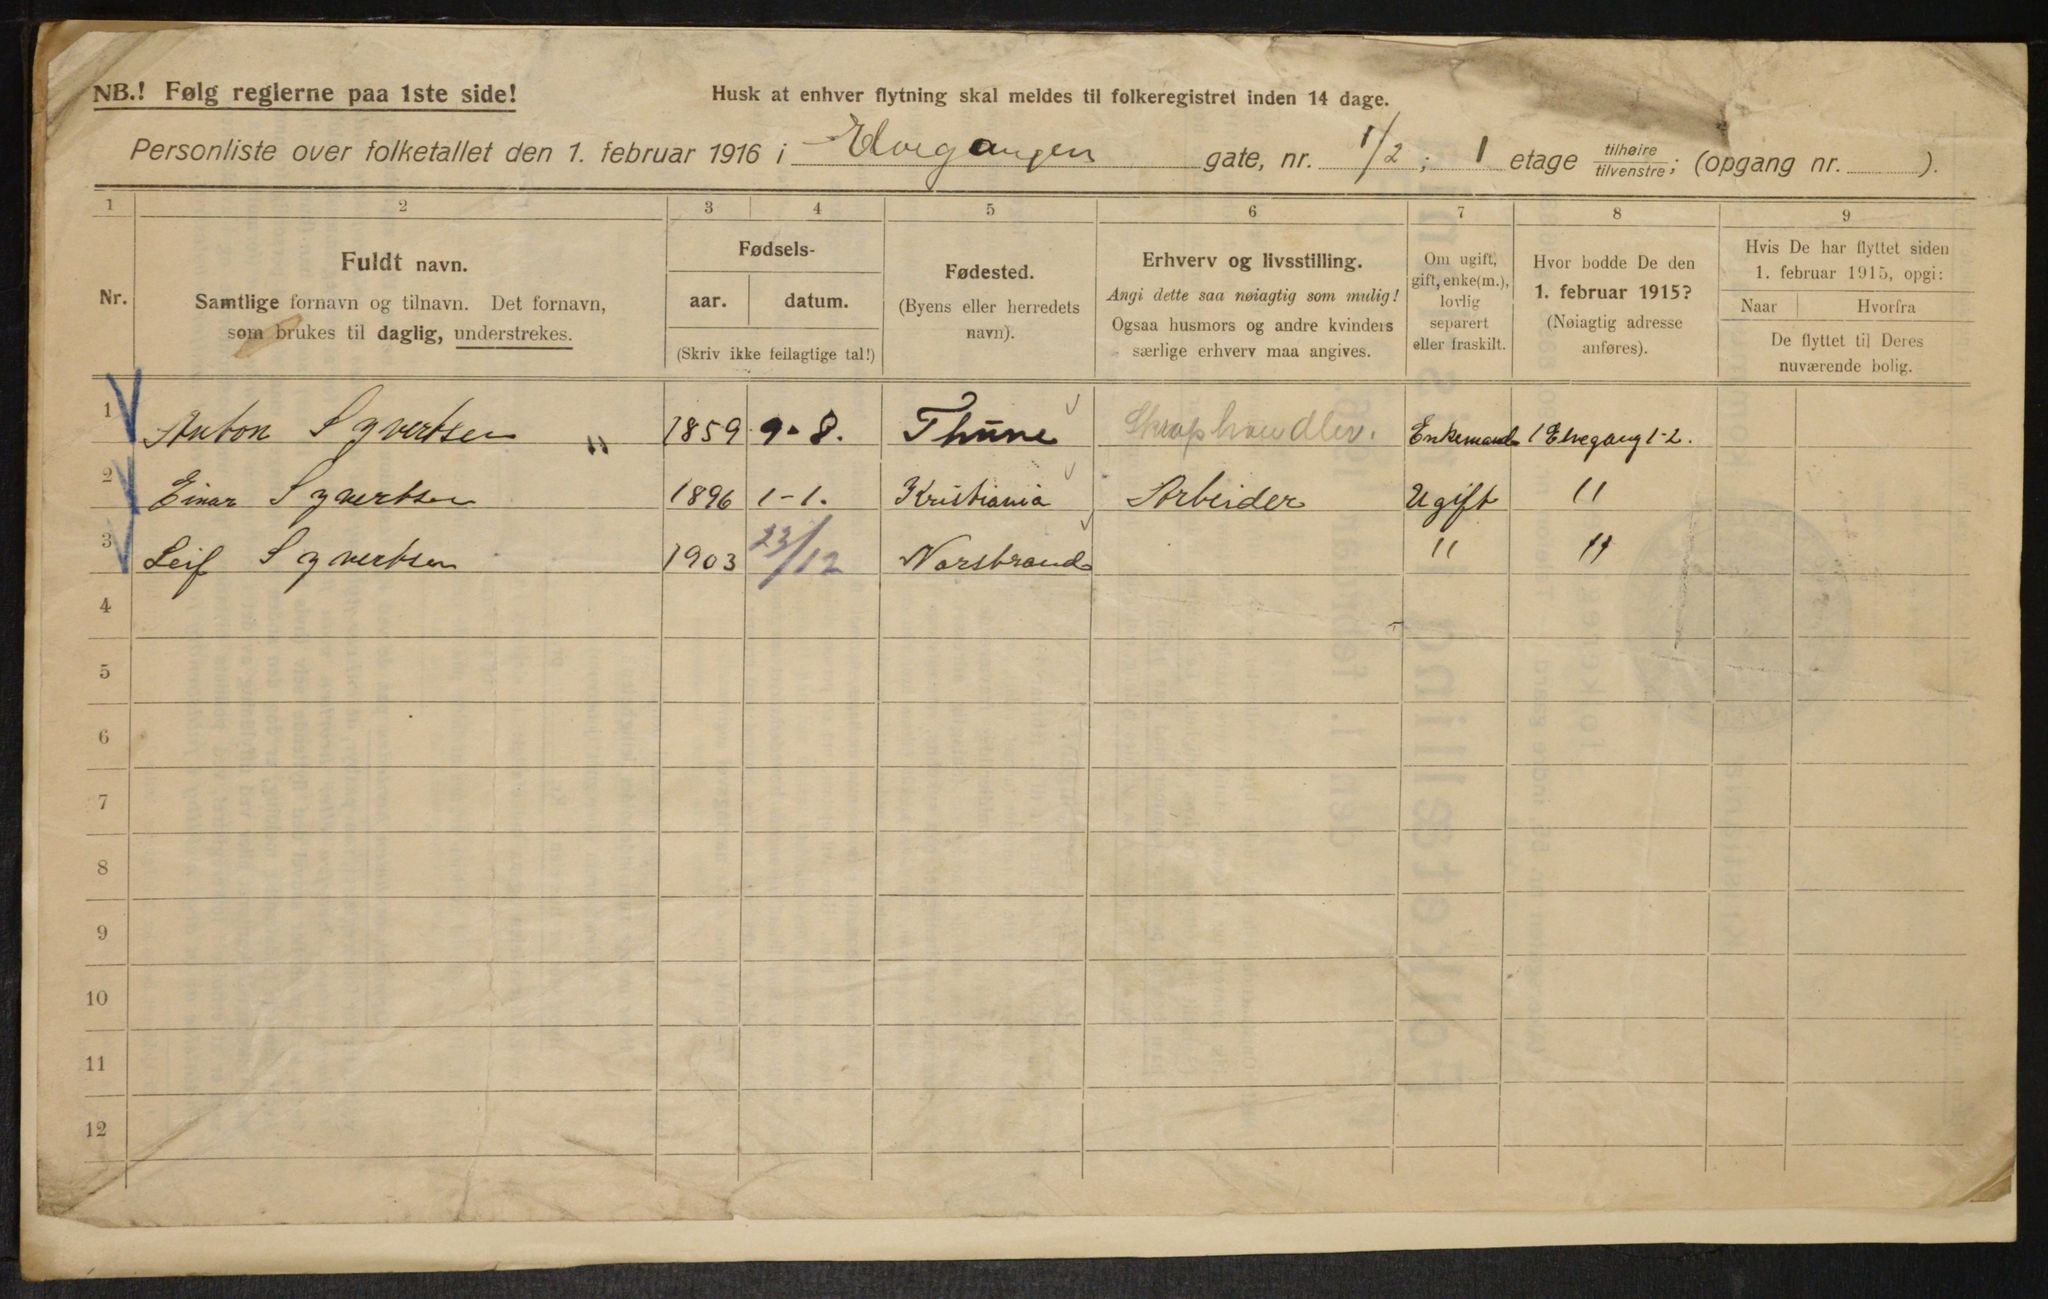 NB.! Følg reglerne paa 1ste side!
Husk at enhver flytning skal meldes til folkeregistret inden 14 dage.
Personliste over folketallet den 1. februar 1916 i Elvegangen gate, nr. 1/2 ; 1 etage tilhøire/tilvenstre; (opgang nr. ).
1 2 3 4 5 6 7 8 9
Nr.
Fuldt navn.
Samtlige fornavn og tilnavn. Det fornavn,
som brukes til daglig, understrekes.
Fødsels-
aar. datum.
(Skriv ikke feilagtige tal!)
Fødested.
(Byens eller herredets
navn).
Erhverv og livsstilling.
Angi dette saa nøiagtig som mulig!
Ogsaa husmors og andre kvinders
særlige erhverv maa angives.
Om ugift,
gift, enke(m.),
lovlig
separert
eller fraskilt.
Hvor bodde De den
1. februar 1915?
(Nøiagtig adresse
anføres).
Hvis De har flyttet siden
1. februar 1915, opgi:
Naar Hvorfra
De flyttet til Deres
nuværende bolig.
1 Anton Syvertsen " 1859 9-8. Thune Skraphandler. Enkemand 1 Elvegang 1-2.
2 Einar Syvertsen 1896 1-1. Kristiania Arbeider Ugift "
3 Leif Syvertsen 1903 23/12 Norstrand " "
4
5
6
7
8
9
10
11
12